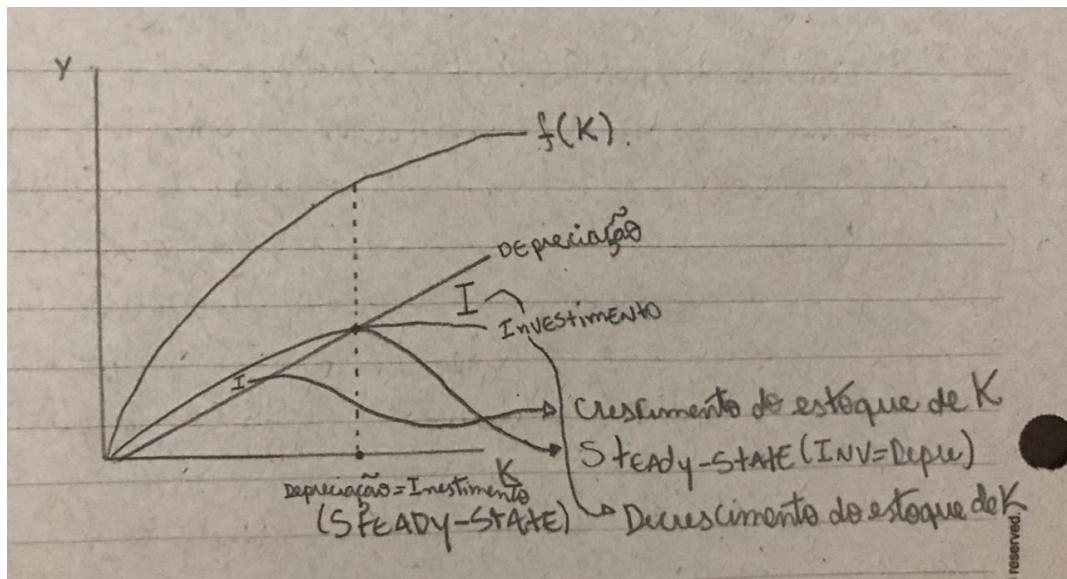 Y
f(K).
DEpreciação
I
InvEstimENto
I
Crescimento do estoque de K
StEAdy-StAtE (INV=Depre)
K
Depreciação=Inestimento
(StEADY-StAtE)
Decrescimento do estoque de K
reserved.